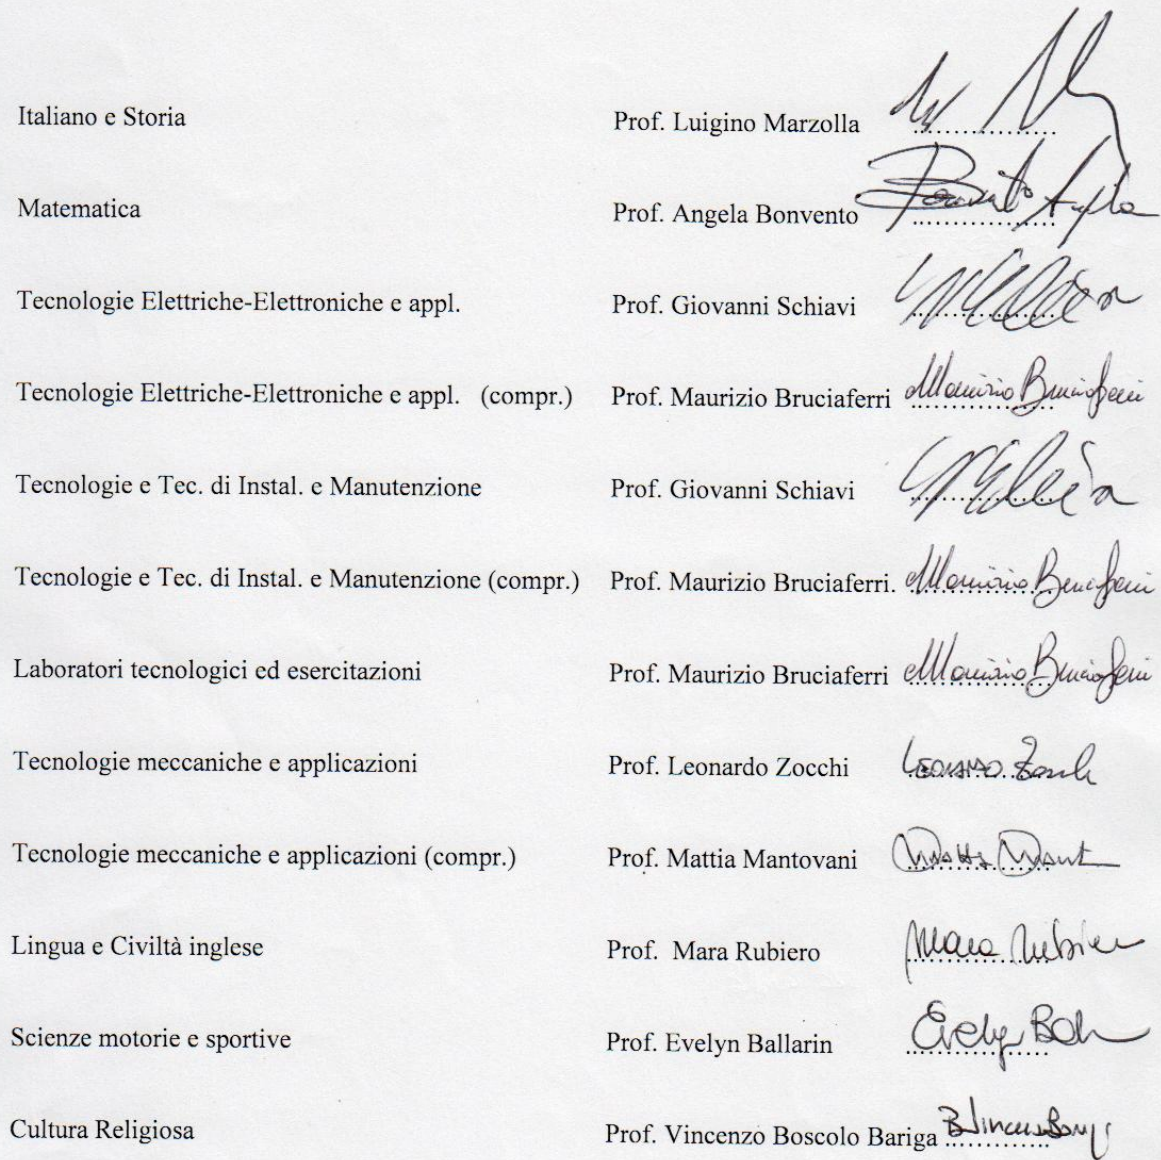 Italiano e Storia Prof. Luigino Marzolla ................
Matematica Prof. Angela Bonvento ................
Tecnologie Elettriche-Elettroniche e appl. Prof. Giovanni Schiavi ................
Tecnologie Elettriche-Elettroniche e appl. (compr.) Prof. Maurizio Bruciaferri Maurizio Bruciaferri
Tecnologie e Tec. di Instal. e Manutenzione Prof. Giovanni Schiavi ................
Tecnologie e Tec. di Instal. e Manutenzione (compr.) Prof. Maurizio Bruciaferri. Maurizio Bruciaferri
Laboratori tecnologici ed esercitazioni Prof. Maurizio Bruciaferri Maurizio Bruciaferri
Tecnologie meccaniche e applicazioni Prof. Leonardo Zocchi Leonardo Zocchi
Tecnologie meccaniche e applicazioni (compr.) Prof. Mattia Mantovani Mattia
Lingua e Civiltà inglese Prof. Mara Rubiero Mara Rubiero
Scienze motorie e sportive Prof. Evelyn Ballarin Evelyn
Cultura Religiosa Prof. Vincenzo Boscolo Bariga ..............